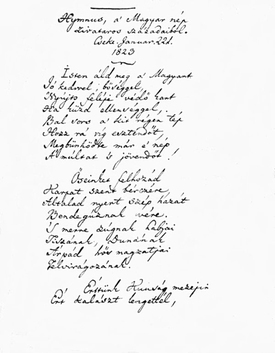 Hymnus, a' Magyar nép
zivataros századaiból.
Cseke Januar. 22d.
1823
Isten áldd meg a' Magyart
Jó kedvvel, bőséggel,
Nyújts feléje védő kart
Ha küzd ellenséggel,
Bal sors a' kit régen tép
Hozz rá víg esztendőt,
Megbűnhődte már e' nép
A' multat 's jövendőt!
Őseinket felhozád
Kárpát szent bérczére,
Általad nyert szép hazát
Bendegúznak vére.
'S merre zúgnak habjai
Tiszának, Dunának
Árpád hős magzatjai
Felvirágozának.
Értünk Kunság mezejin
Ért kalászt lengettél,